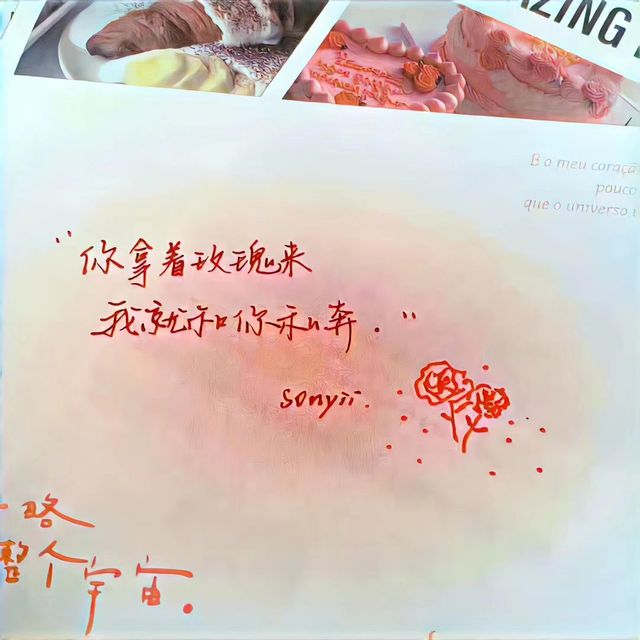 AZING
E o meu coraçã
pouco
que o universo
“你拿着玫瑰来
我就和你私奔.”
sonyii.
略
整个宇宙。